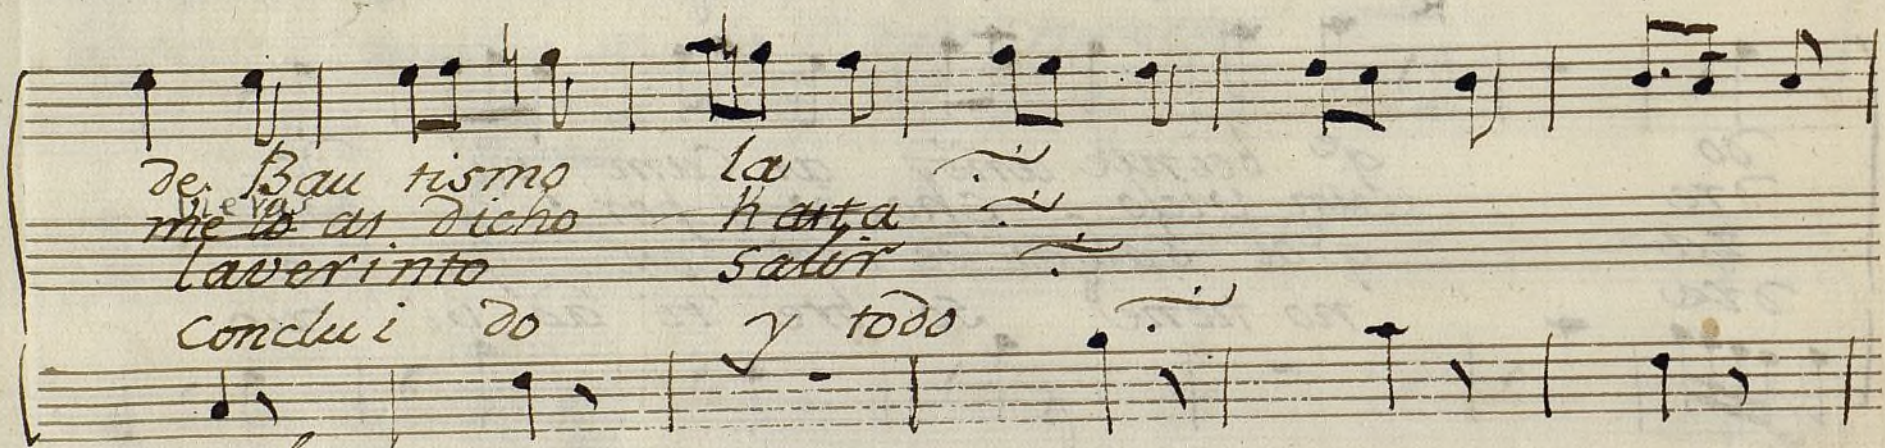 de Bau tismo la
me lo as dicho hasta
laverinto salir
conclui do y todo